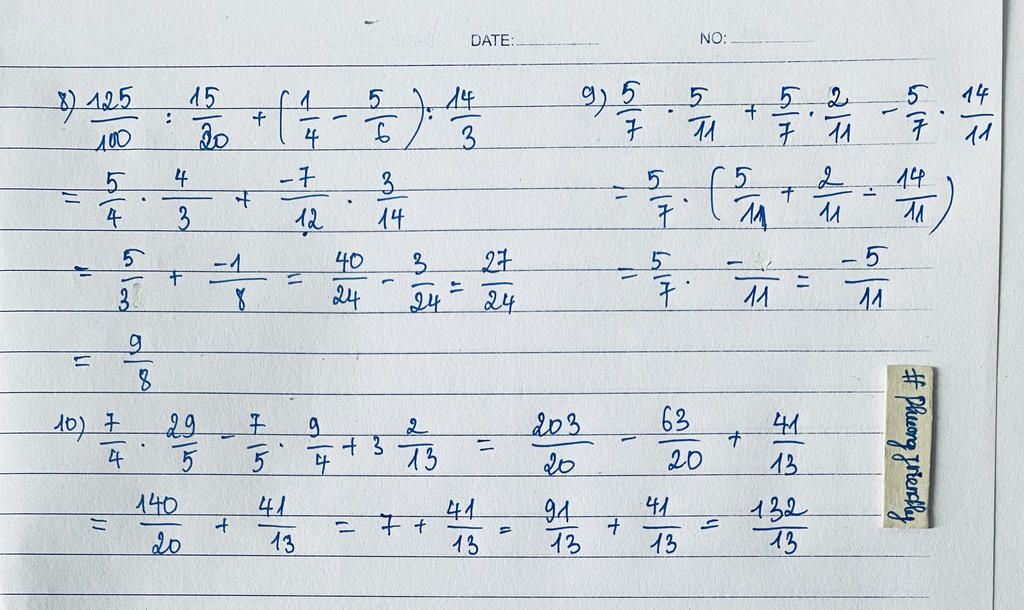 DATE: NO:
8) 125/100 : 15/20 + (1/4 - 5/6) : 14/3
= 5/4 . 4/3 + -7/12 . 3/14
= 5/3 + -1/8 = 40/24 - 3/24 = 27/24
= 9/8
9) 5/7 . 5/11 + 5/7 . 2/11 - 5/7 . 14/11
= 5/7 . (5/11 + 2/11 - 14/11)
= 5/7 . -/11 = -5/11
10) 7/4 . 29/5 - 7/5 . 9/4 + 3 2/13 = 203/20 - 63/20 + 41/13
= 140/20 + 41/13 = 7 + 41/13 = 91/13 + 41/13 = 132/13
# phuong friendly